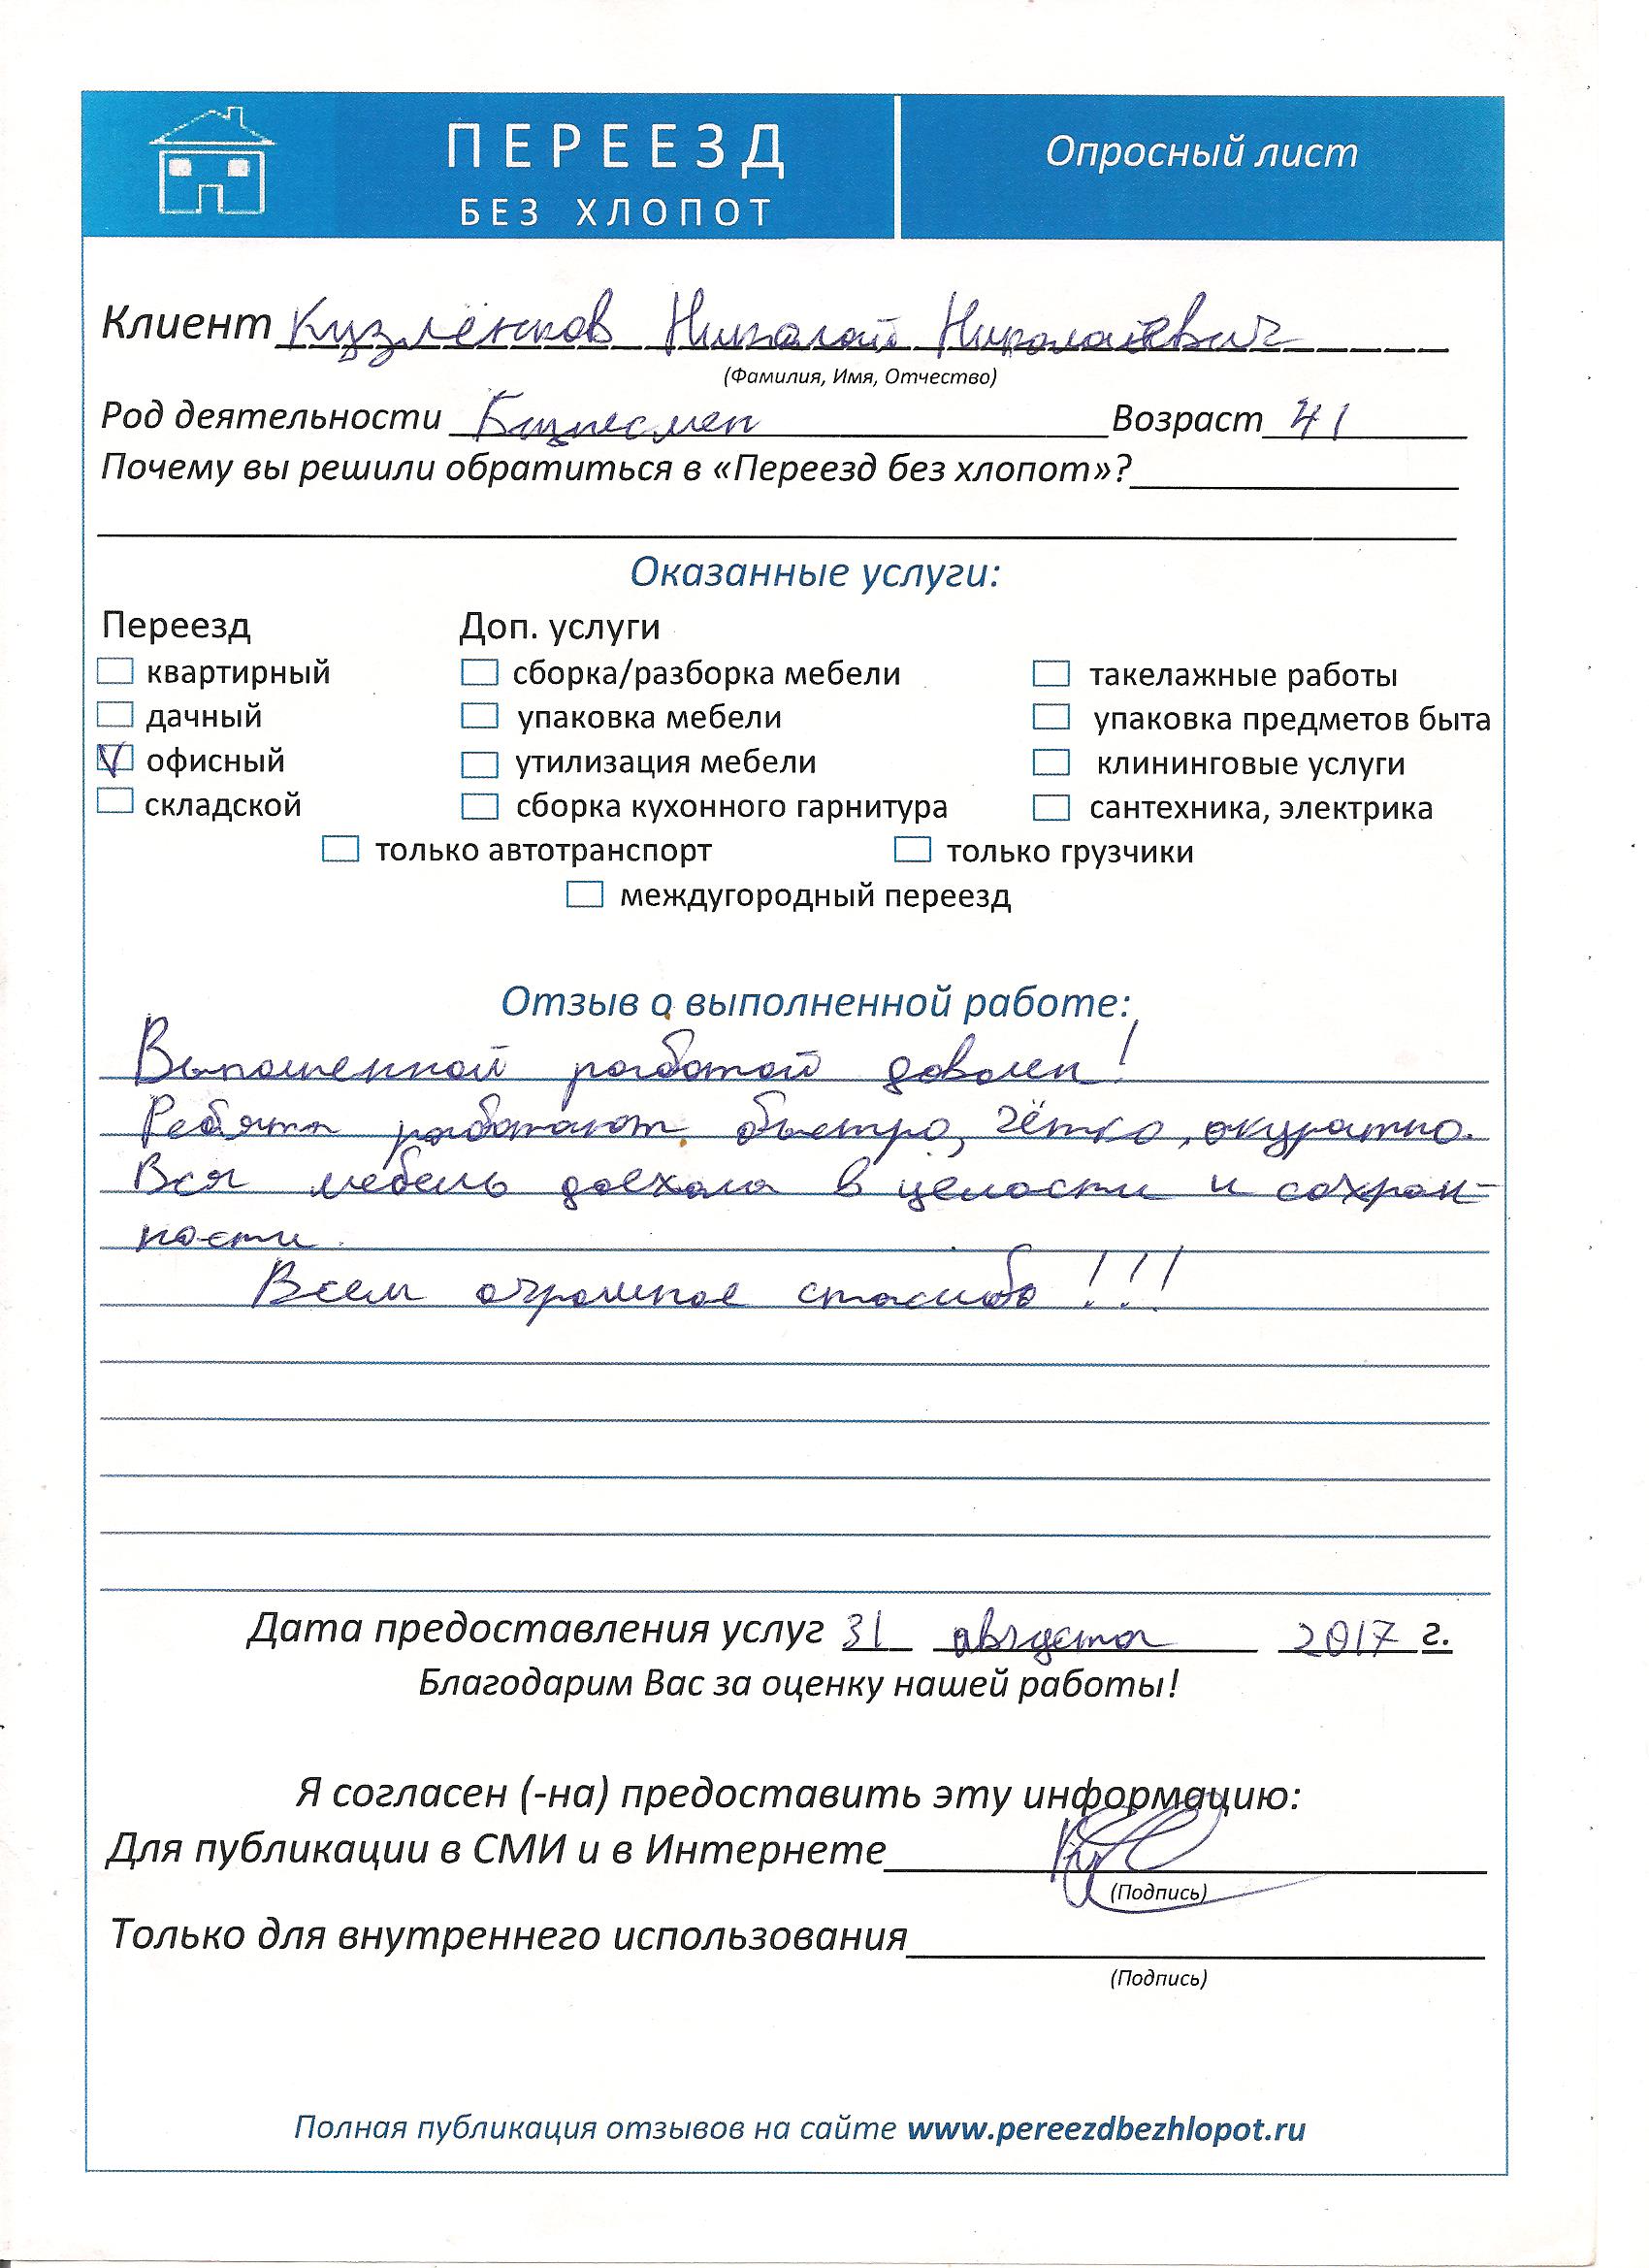 ПЕРЕЕЗД
БЕЗ ХЛОПОТ
Опросный лист
Клиент Кузлёнков Николай Николаевич
(Фамилия, Имя, Отчество)
Род деятельности Бизнесмен Возраст 41
Почему вы решили обратиться в «Переезд без хлопот»?
Оказанные услуги:
Переезд Доп. услуги
квартирный сборка/разборка мебели такелажные работы
дачный упаковка мебели упаковка предметов быта
офисный утилизация мебели клининговые услуги
складской сборка кухонного гарнитура сантехника, электрика
только автотранспорт только грузчики
междугородный переезд
Отзыв о выполненной работе:
Выполненной работой доволен!
Ребята работают быстро, чётко, акуратно.
Вся мебель доехала в целости и сохран-
ности.
Всем огромное спасибо!!!
Дата предоставления услуг 31 августа 2017 г.
Благодарим Вас за оценку нашей работы!
Я согласен (-на) предоставить эту информацию:
Для публикации в СМИ и в Интернете
(Подпись)
Только для внутреннего использования
(Подпись)
Полная публикация отзывов на сайте www.pereezdbezhlopot.ru